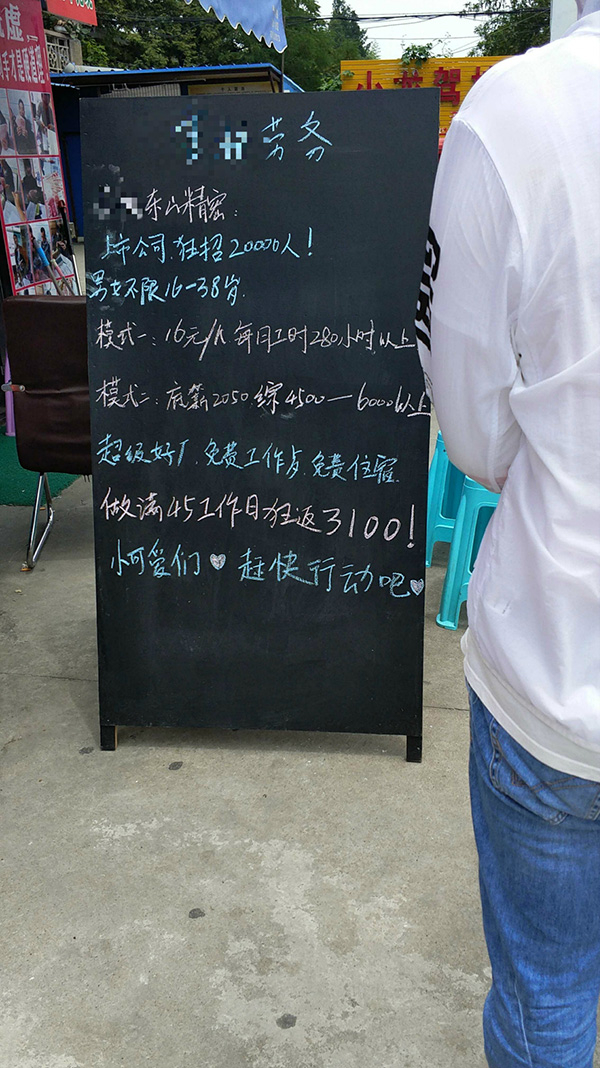 虚
劳务
东山精密:
上市公司.狂招20000人!
男女不限16-38岁.
模式一:16元/h 每日工时280小时以上
模式二:底薪2050.综4500—6000以上
超级好厂.免费工作餐.免费住宿.
做满45工作日狂返3100!
小可爱们♥ 赶快行动吧♥